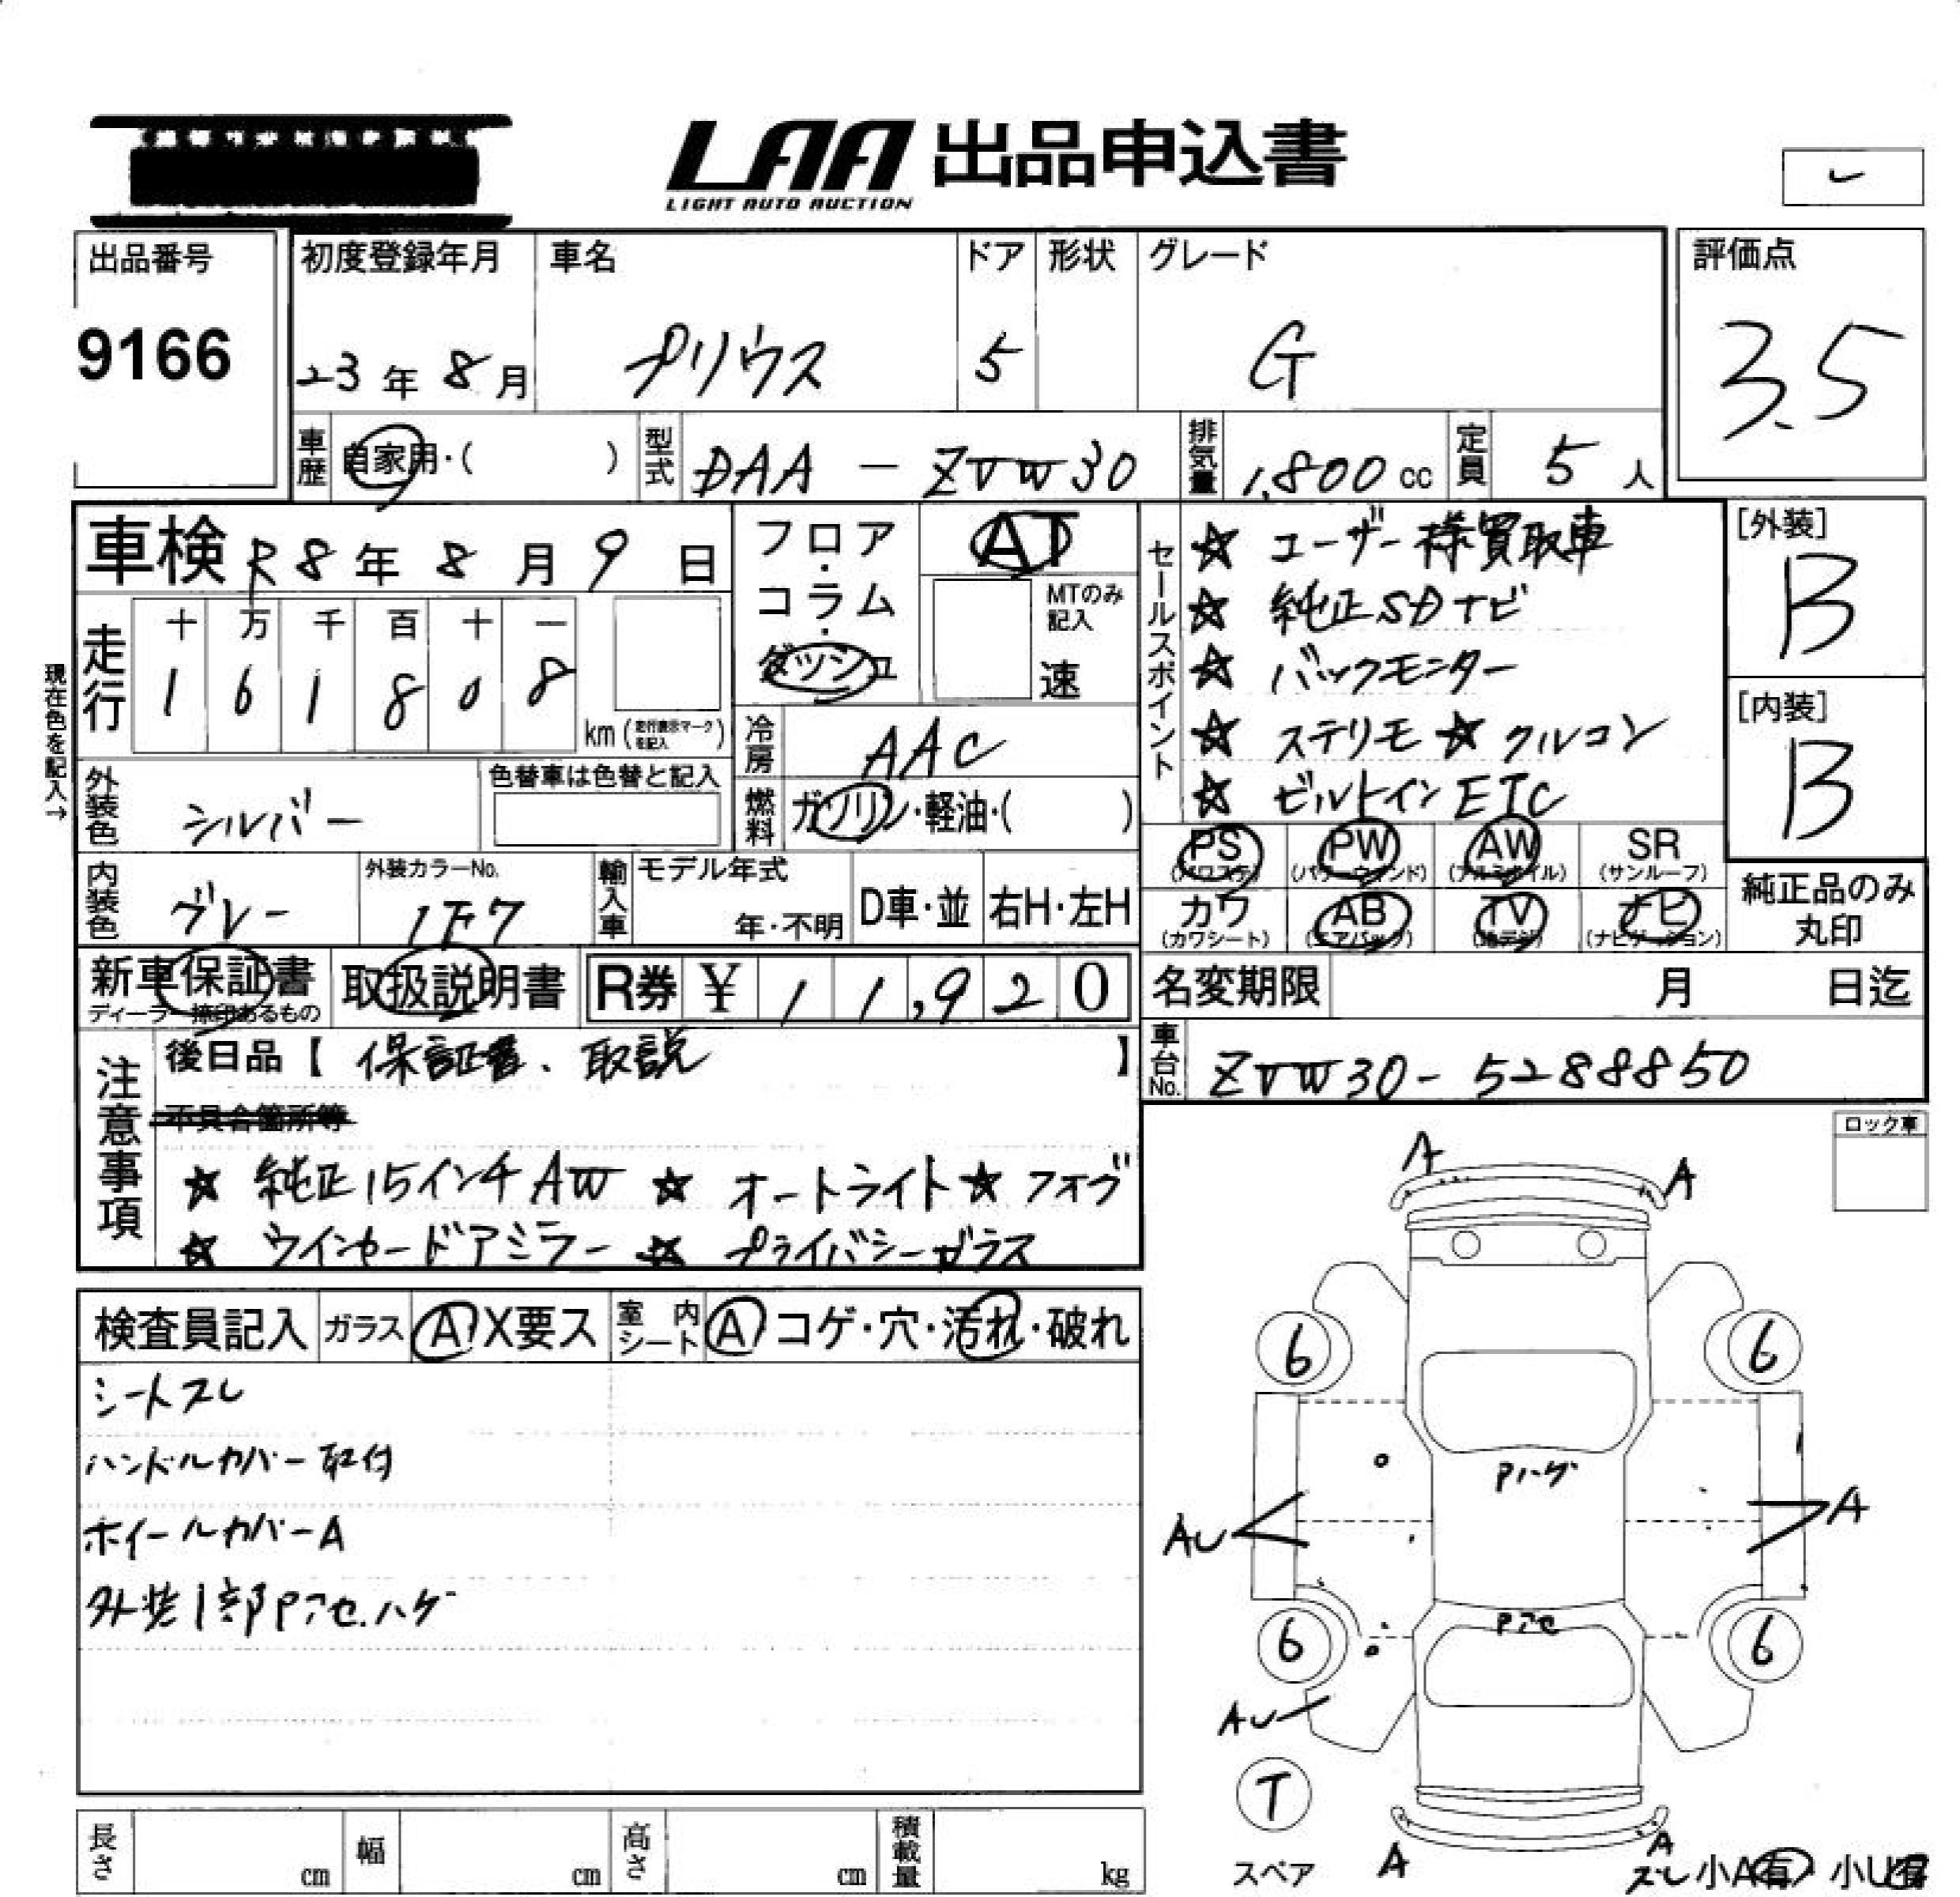 LAA 出品申込書
LIGHT AUTO AUCTION
出品番号 初度登録年月 車名 ドア 形状 グレード 評価点
9166 23年 8月 プリウス 5 G 3.5
車歴 自家用・( ) 型式 DAA - ZVW30 排気量 1,800cc 定員 5人
車検 R8年 8月 9日 フロア・コラム・ダッシュ AT
MTのみ記入 速
セールスポイント
☆ ユーザー様買取車
☆ 純正SDナビ
☆ バックモニター
☆ ステリモ ☆ クルコン
☆ ビルトインETC
[外装] B
[内装] B
現在色を記入→
走行 十 万 千 百 十 一
1 6 1 8 0 8
km (走行表示マークを記入)
冷房 AAC
外装色 シルバー 色替車は色替と記入 燃料 ガソリン・軽油・( )
PS (パワステ) PW (パワーウィンド) AW (アルミホイル) SR (サンルーフ)
カワ (カワシート) AB (エアバック) TV (地デジ) ナビ (ナビゲーション)
純正品のみ丸印
内装色 グレー 外装カラーNo. 1F7 輸入車 モデル年式 年・不明 D車・並 右H・左H
新車保証書 ディーラー捺印あるもの 取扱説明書 R券 ¥ 11,920 名変期限 月 日迄
車台No. ZVW30-5288850
注意事項
後日品【 保証書、取説 】
不具合箇所等
☆ 純正15インチAW ☆ オートライト ☆ フォグ
☆ ウインカードアミラー ☆ プライバシーガラス
ロック車
検査員記入 ガラス A X要ス 室内シート A コゲ・穴・汚れ・破れ
シートスレ
ハンドルカバー取付
ホイールカバーA
外装1部Pアセ.ハゲ
A A
6 6
Pハゲ
AU A
Pアセ
6 6
AU
T
スペア A A
ズレ 小A有 小U有
長さ cm 幅 cm 高さ cm 積載量 kg